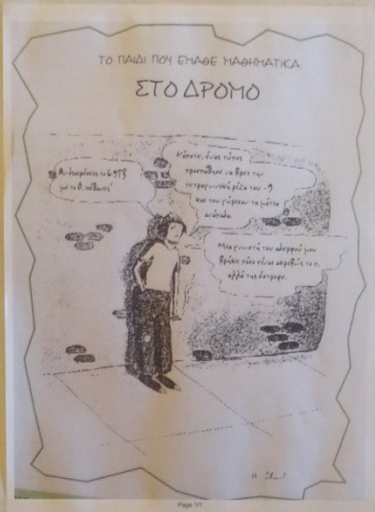 ΤΟ ΠΑΙΔΙ ΠΟΥ ΕΜΑΘΕ ΜΑΘΗΜΑΤΙΚΑ
ΣΤΟ ΔΡΟΜΟ
με το 0, πέθανες
Κάποτε, ένας τύπος
προσπάθησε να βρει την
τετραγωνική ρίζα του -9
και του γύρισαν τα μάτια
ανάποδα.
Μια γνωστή του αδερφού μου
βρήκε πόσο είναι ακριβώς το π,
αλλά της έστριψε.
Page 1/1